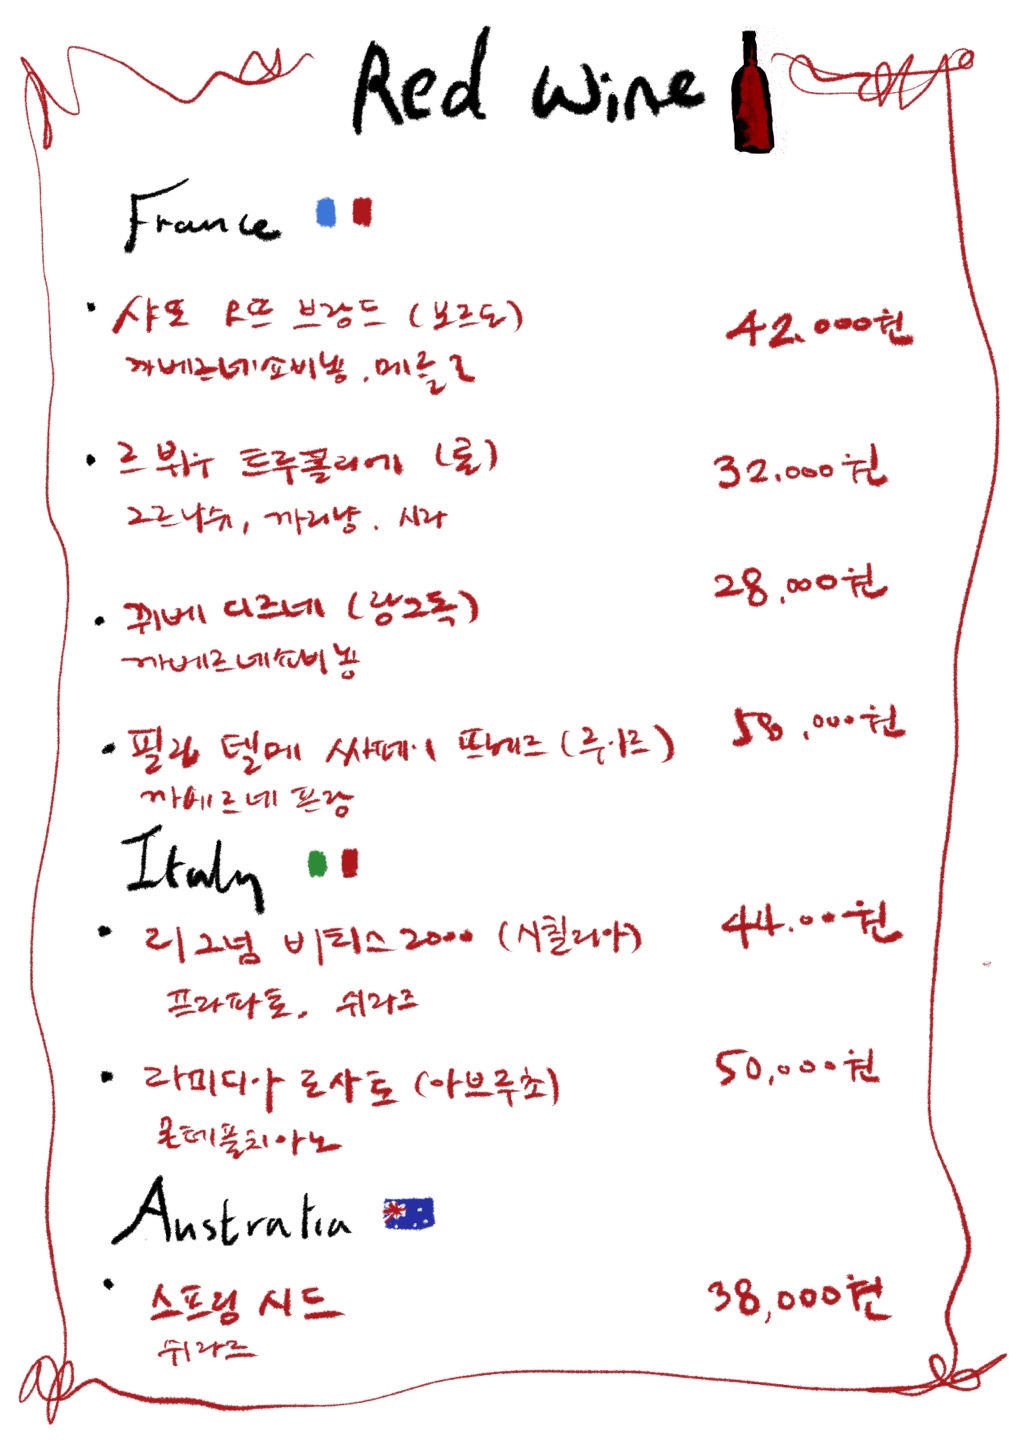 Red wine
France
샤또 오뜨 브랑드 (보르도) 42.000원
까베르네쇼비뇽. 메를로
르 뷔유 트루폴리에 (론) 32.000원
그르나슈, 까리냥. 시라
뀌베 디즈네 (랑그독) 28,000원
까베르네쇼비뇽
필립 텔메 싸떼이 뜨베르 (루아르) 58,000원
까베르네 프랑
Italy
리그넘 비티스 2000 (시칠리아) 44.000원
프라파토, 쉬라즈
라미디아 로사토 (아브루쵸) 50,000원
몬테풀치아노
Australia
스프링 시드 38,000원
쉬라즈